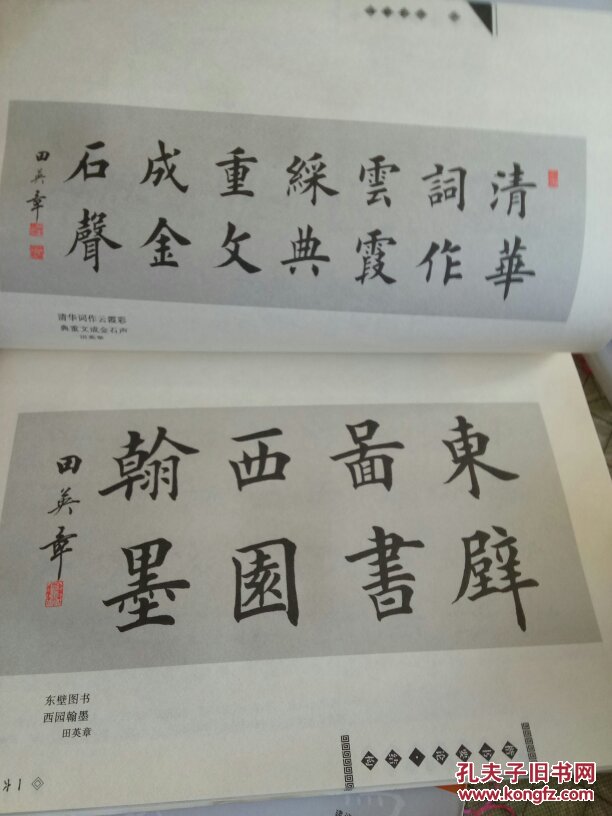 清華
詞作
雲霞
綵典
重文
成金
石聲
田英章
清华词作云霞彩
典重文成金石声
田英章
東壁
啚書
西園
翰墨
田英章
东壁图书
西园翰墨
田英章
孔夫子旧书网
www.kongfz.com